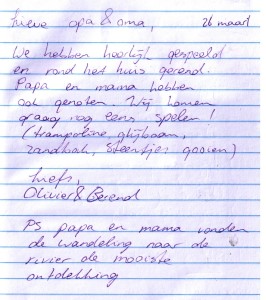 Lieve opa & oma, 26 maart
We hebben heerlijk gespeeld
en rond het huis gerend.
Papa en mama hebben
ook genoten. Wij komen
graag nog eens spelen!
(trampoline, glijbaan,
zandbak, steentjes gooien)
liefs,
Olivier & Berend
PS papa en mama vonden
de wandeling naar de
rivier de mooiste
ontdekking